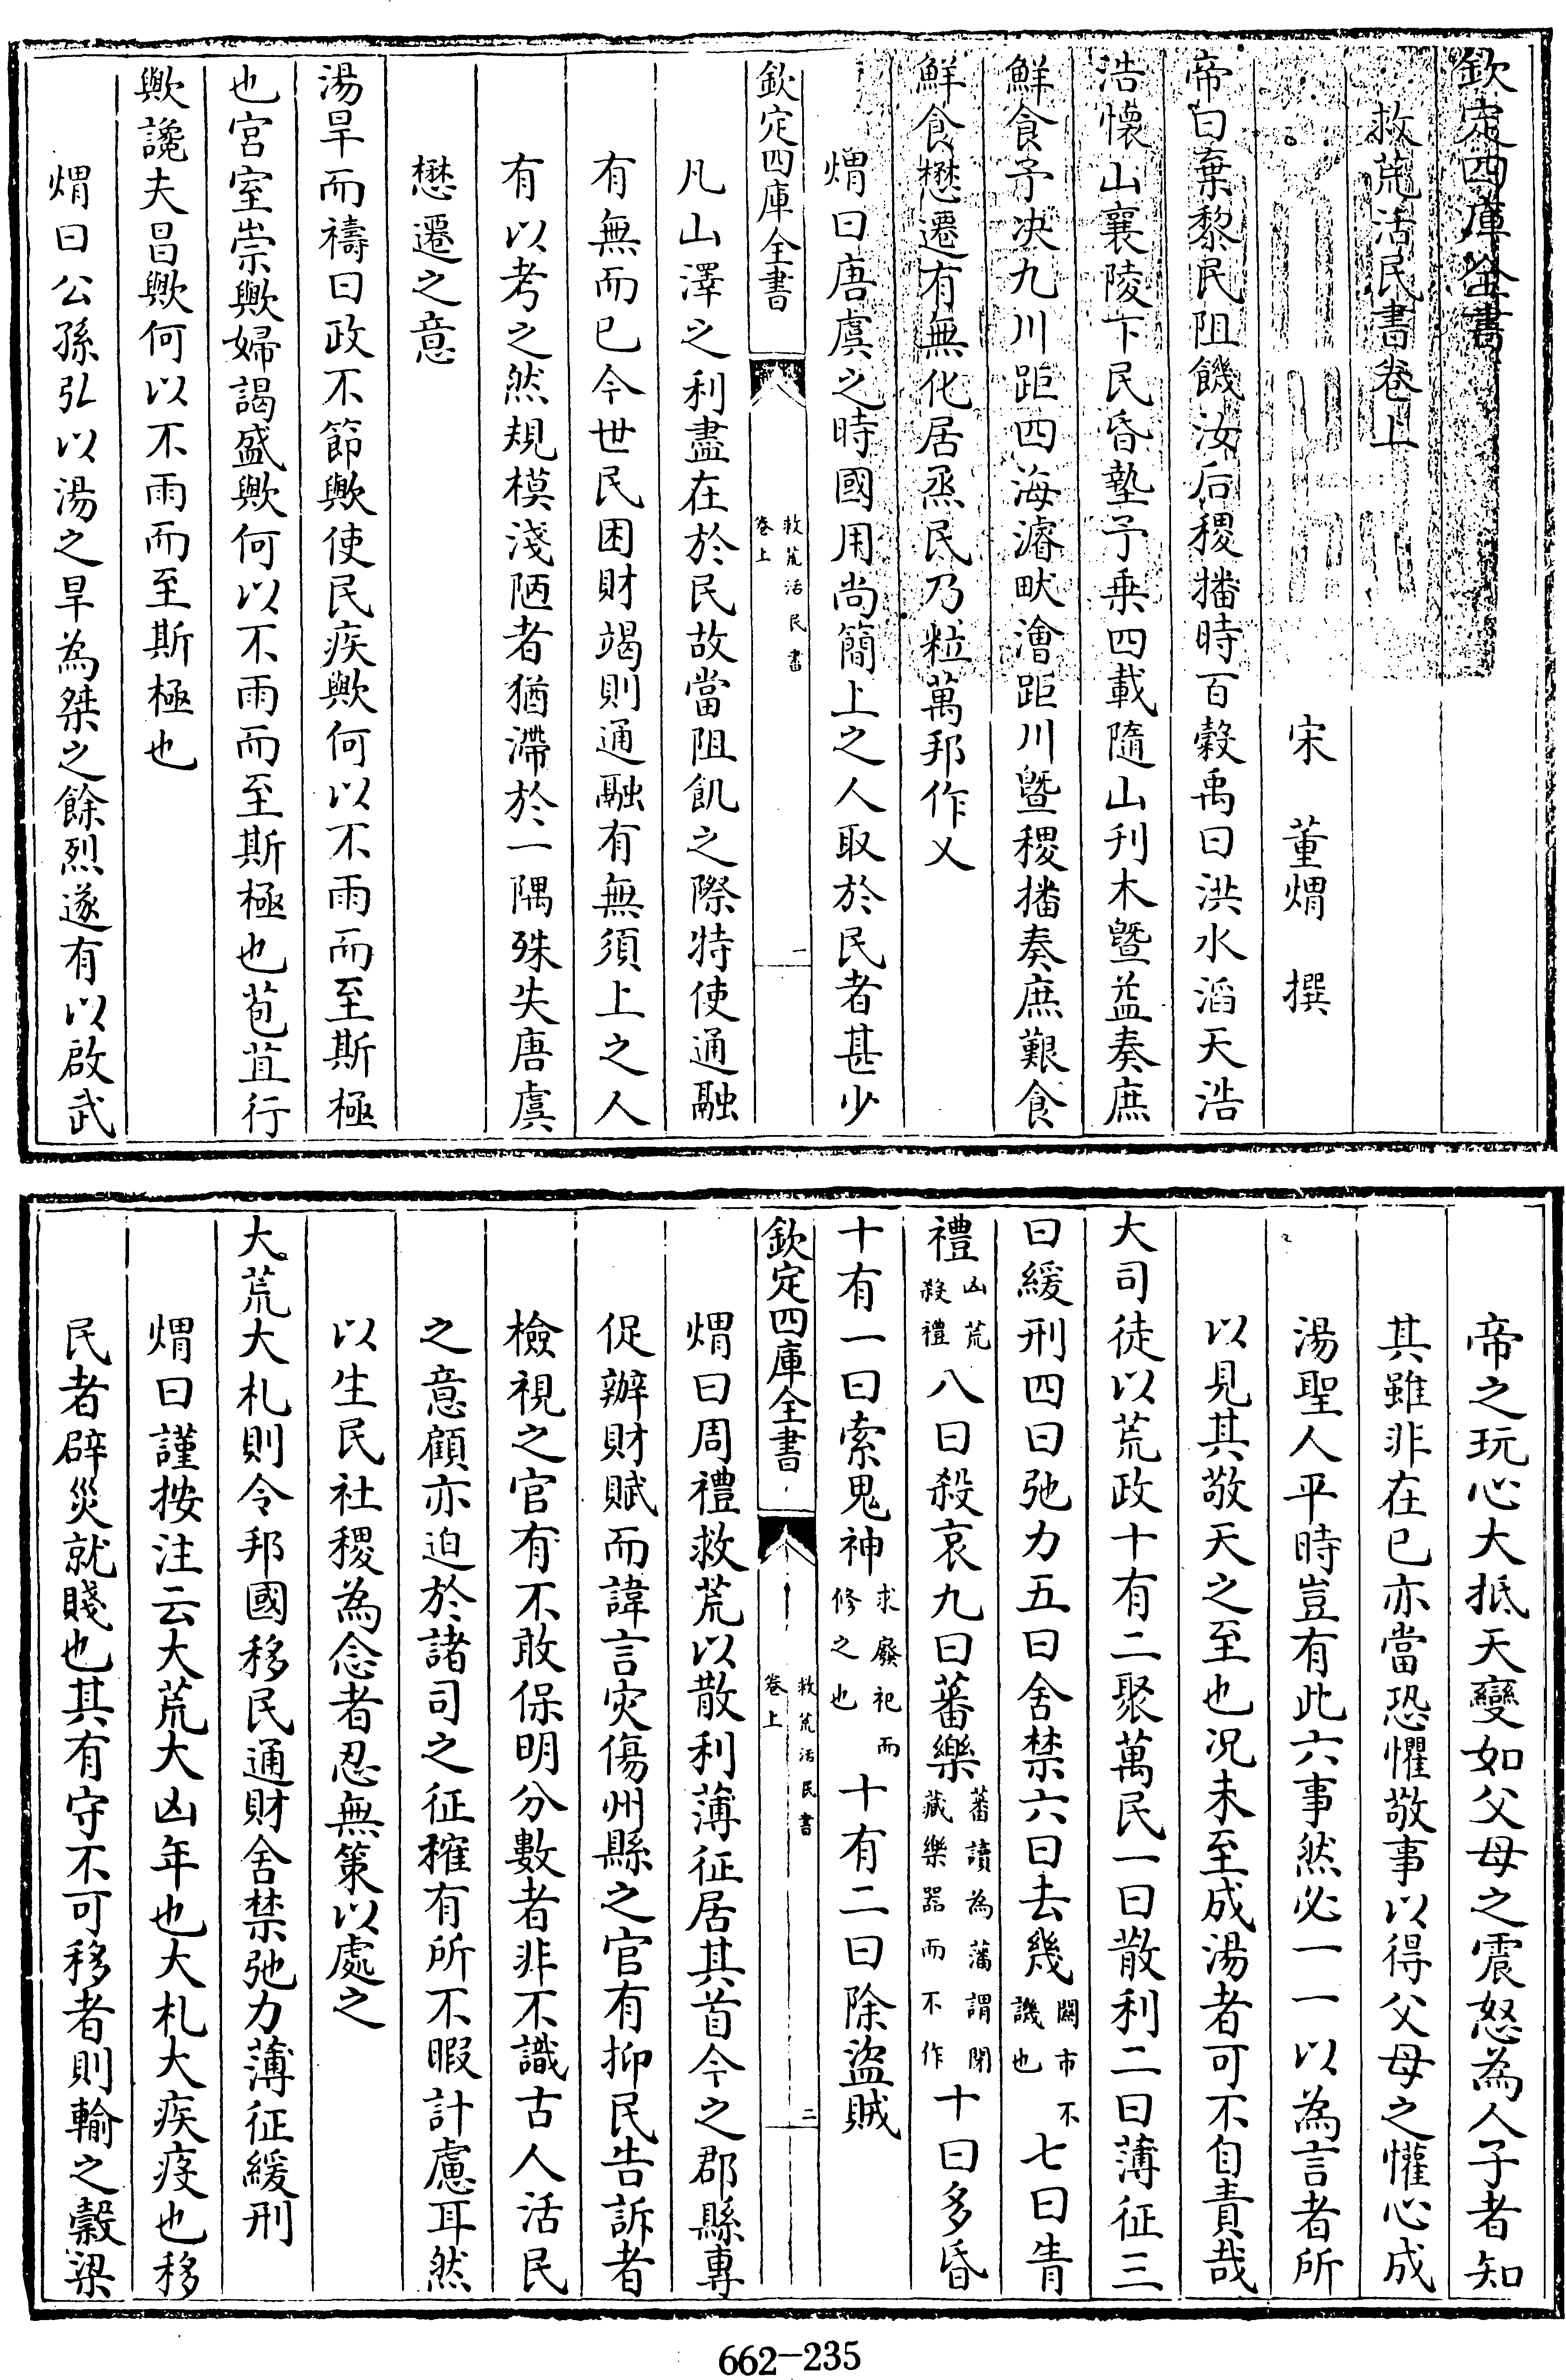 欽定四庫全書
救荒活民書卷上
宋 董煟 撰
帝曰棄黎民阻饑汝后稷播時百穀禹曰洪水滔天浩
浩懷山襄陵下民昏墊予乘四載隨山刋木曁益奏庶
鮮食予决九川距四海濬畎澮距川曁稷播奏庶艱食
鮮食懋遷有無化居烝民乃粒萬邦作乂
煟曰唐虞之時國用尚簡上之人取於民者甚少
欽定四庫全書
救荒活民書
卷上
一
凡山澤之利盡在於民故當阻飢之際特使通融
有無而已今世民困財竭則通融有無須上之人
有以考之然規模淺陋者猶滯於一隅殊失唐虞
懋遷之意
湯旱而禱曰政不節歟使民疾歟何以不雨而至斯極
也宮室崇歟婦謁盛歟何以不雨而至斯極也苞苴行
歟讒夫昌歟何以不雨而至斯極也
煟曰公孫弘以湯之旱為桀之餘烈遂有以啟武
帝之玩心大抵天變如父母之震怒為人子者知
其雖非在已亦當恐懼敬事以得父母之懽心成
湯聖人平時豈有此六事然必一一以為言者所
以見其敬天之至也况未至成湯者可不自責哉
大司徒以荒政十有二聚萬民一曰散利二曰薄征三
曰緩刑四曰弛力五曰舍禁六曰去幾關市不譏也七曰眚
禮凶荒殺禮八曰殺哀九曰蕃樂蕃讀為藩謂閉藏樂器而不作十曰多昏
十有一曰索鬼神求廢祀而修之也十有二曰除盜賊
欽定四庫全書
救荒活民書
卷上
二
煟曰周禮救荒以散利薄征居其首今之郡縣專
促辦財賦而諱言灾傷州縣之官有抑民告訴者
檢視之官有不敢保明分數者非不識古人活民
之意顧亦迫於諸司之征榷有所不暇計慮耳然
以生民社稷為念者忍無策以處之
大荒大札則令邦國移民通財舍禁弛力薄征緩刑
煟曰謹按注云大荒大凶年也大札大疾疫也移
民者辟災就賤也其有守不可移者則輸之穀梁
662-235